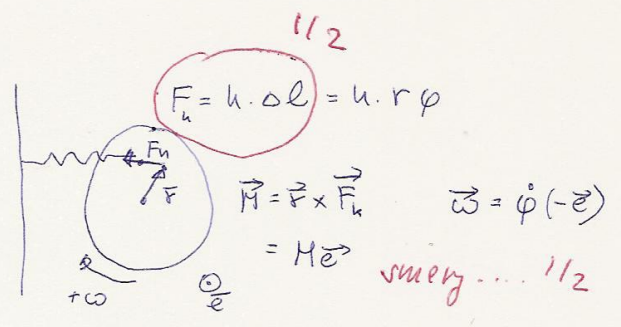 1/2
F_k = k · Δl = k · r φ
F_k
r⃗
M⃗ = r⃗ × F⃗_k
= M e⃗
ω⃗ = φ̇ (-e⃗)
+ω
e⃗
smery.... 1/2